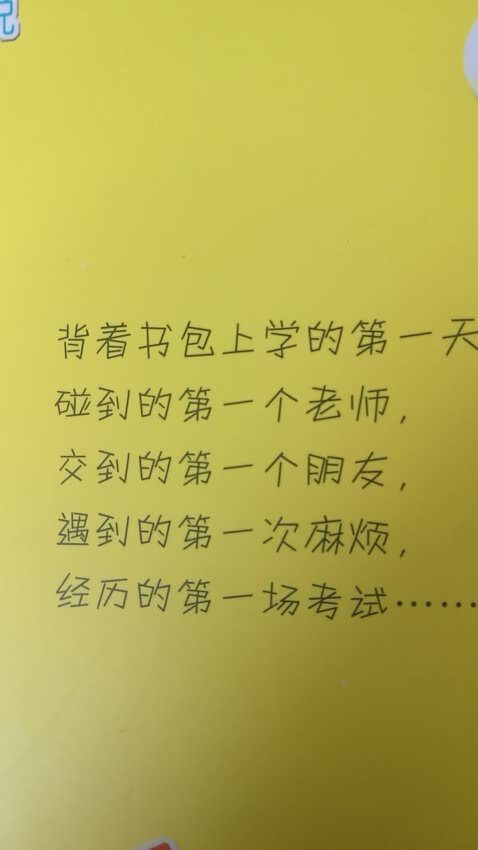 背着书包上学的第一天
碰到的第一个老师，
交到的第一个朋友，
遇到的第一次麻烦，
经历的第一场考试……